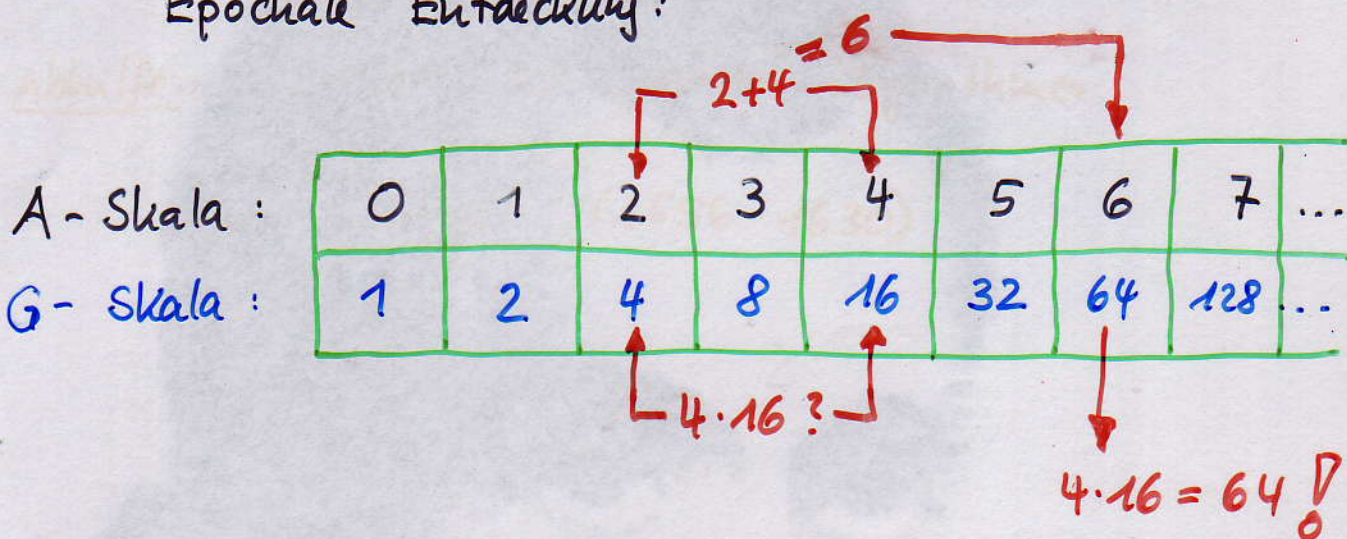 Epochale Entdeckung:
= 6
2+4
A - Skala : 0 1 2 3 4 5 6 7 ...
G - Skala : 1 2 4 8 16 32 64 128 ...
4·16 ?
4·16 = 64 !